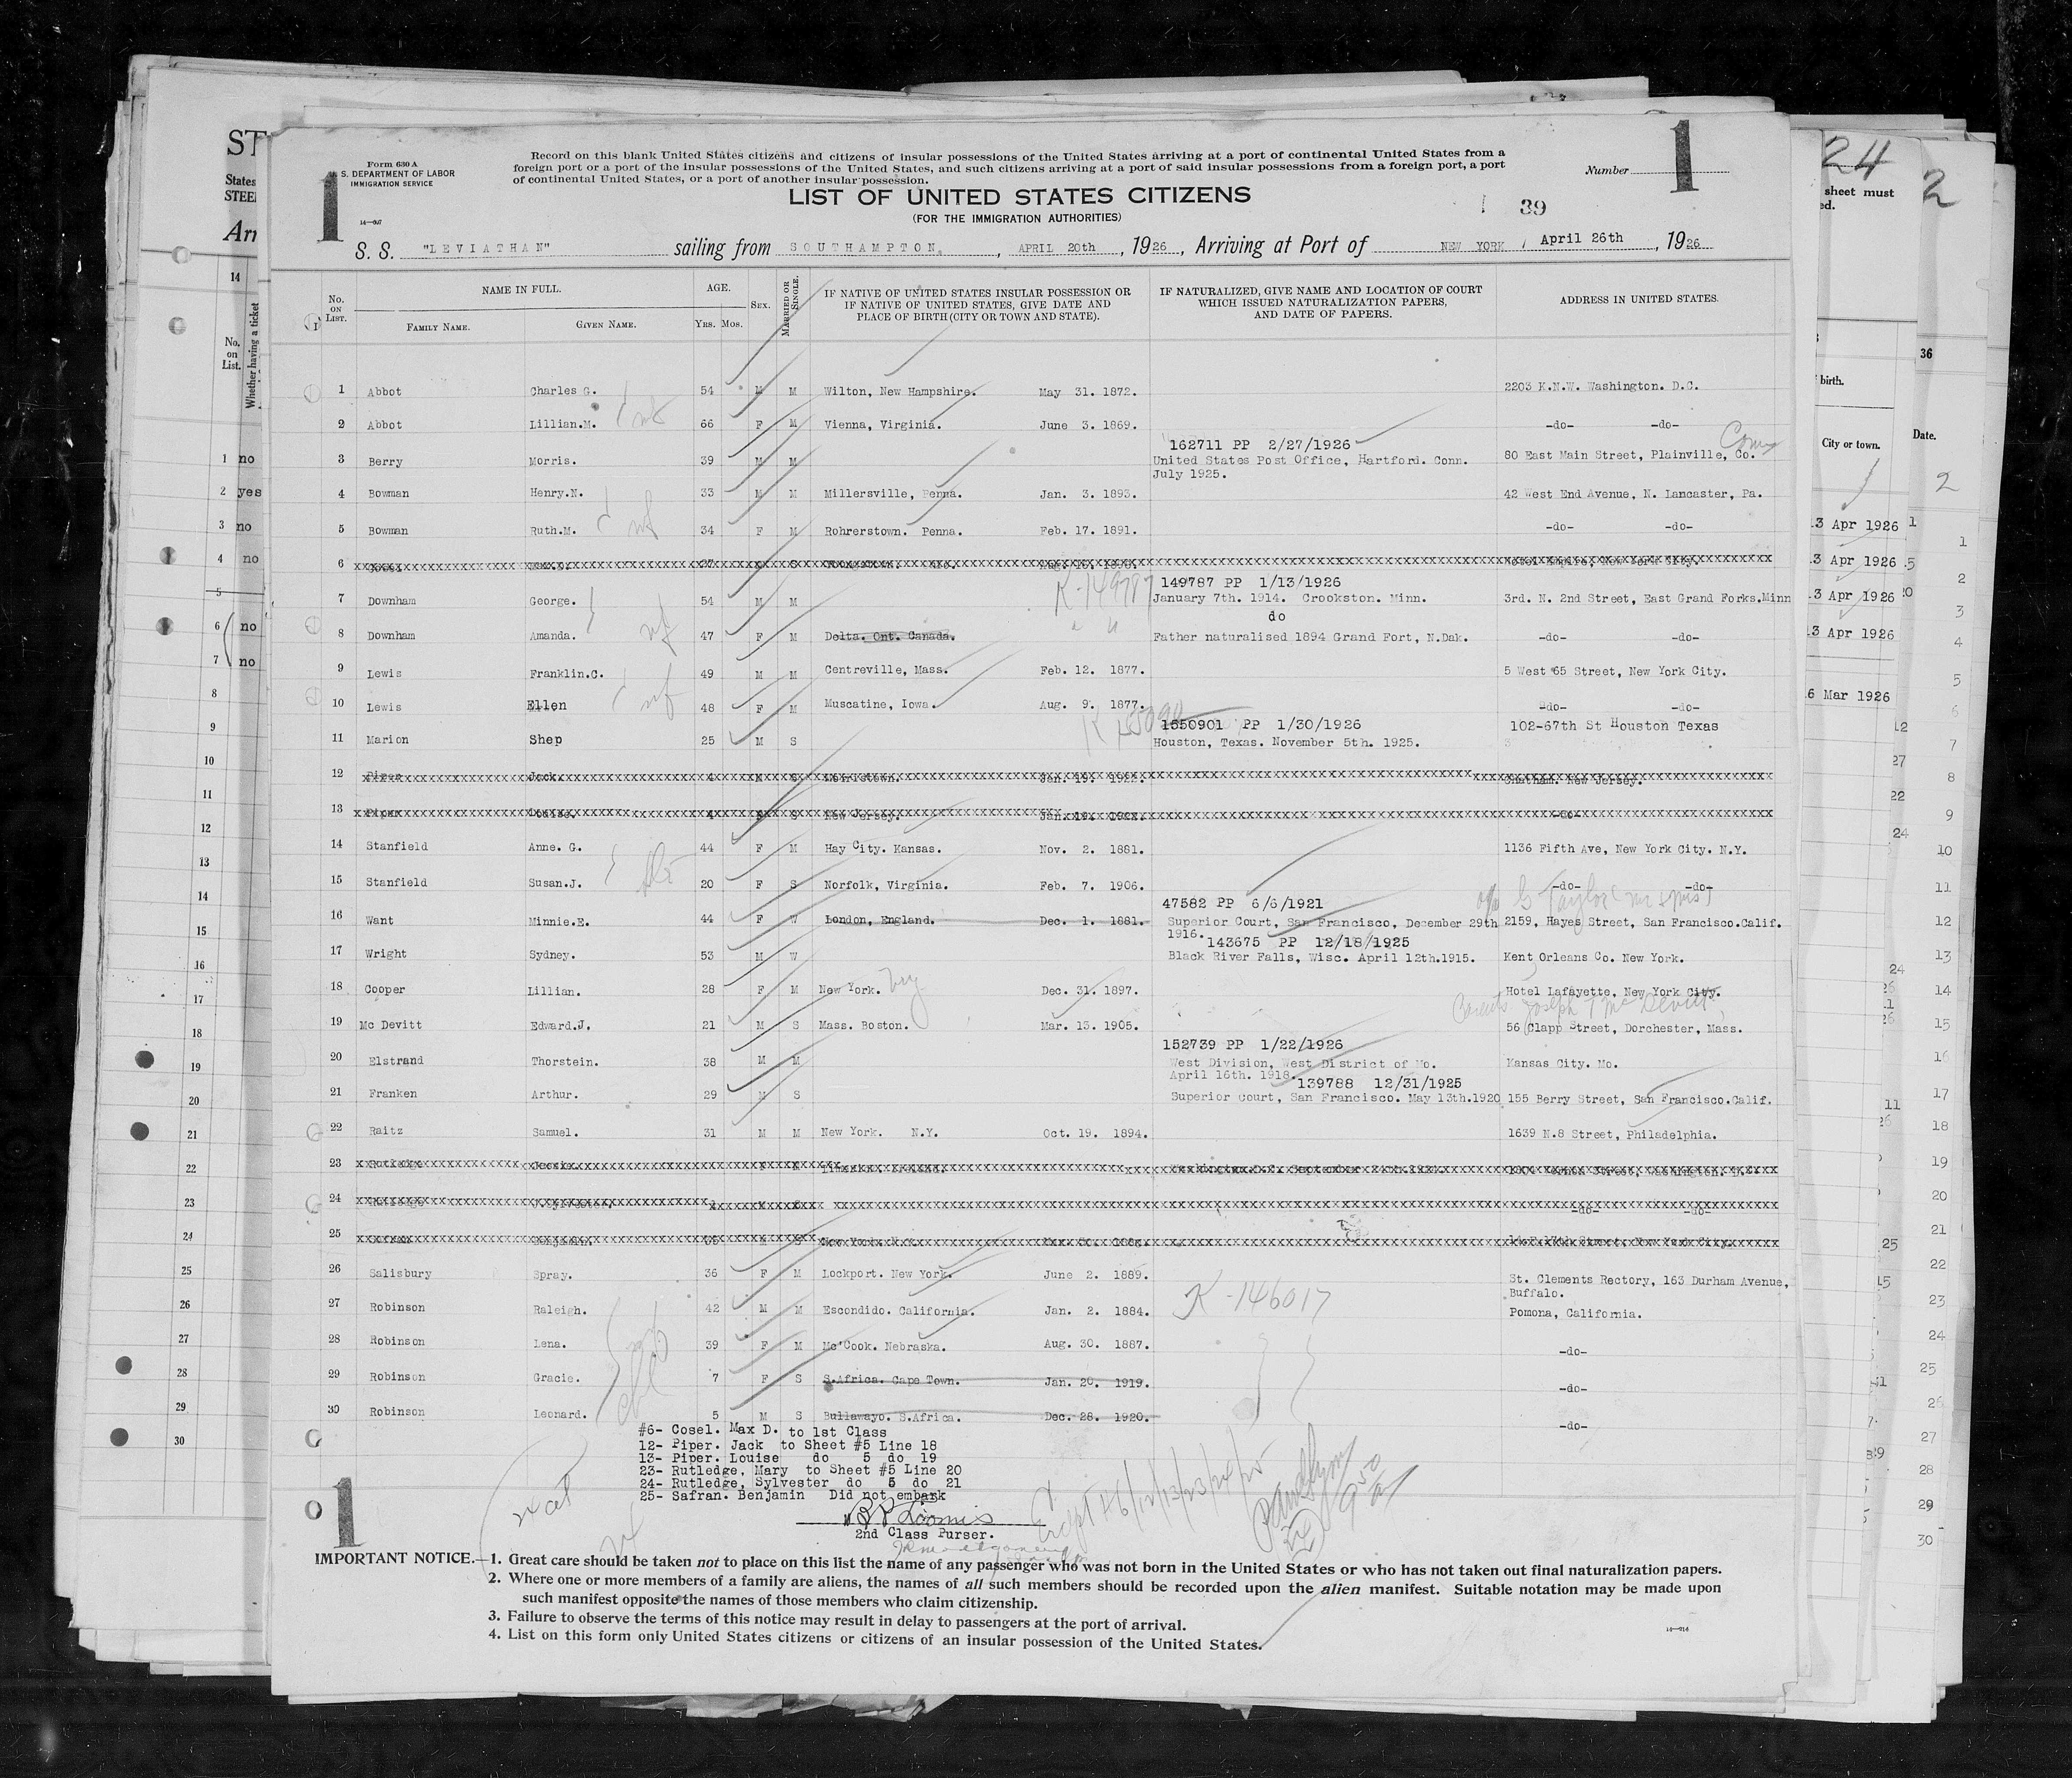 Form 630 A
U. S. DEPARTMENT OF LABOR
IMMIGRATION SERVICE
14—607
1
Record on this blank United States citizens and citizens of insular possessions of the United States arriving at a port of continental United States from a
foreign port or a port of the insular possessions of the United States, and such citizens arriving at a port of said insular possessions from a foreign port, a port
of continental United States, or a port of another insular possession.
Number
1
LIST OF UNITED STATES CITIZENS
(FOR THE IMMIGRATION AUTHORITIES)
39
S. S. "LEVIATHAN" sailing from SOUTHAMPTON, APRIL 20th, 1926, Arriving at Port of NEW YORK, April 26th, 1926
No. ON LIST. NAME IN FULL. FAMILY NAME. GIVEN NAME. AGE. YRS. MOS. SEX. MARRIED OR SINGLE. IF NATIVE OF UNITED STATES INSULAR POSSESSION OR IF NATIVE OF UNITED STATES, GIVE DATE AND PLACE OF BIRTH (CITY OR TOWN AND STATE). IF NATURALIZED, GIVE NAME AND LOCATION OF COURT WHICH ISSUED NATURALIZATION PAPERS, AND DATE OF PAPERS. ADDRESS IN UNITED STATES.
1 Abbot Charles G. 54 M M Wilton, New Hampshire. May 31. 1872. 2203 K.N.W. Washington. D.C.
2 Abbot Lillian.M. 66 F M Vienna, Virginia. June 3. 1869. -do- -do-
162711 PP 2/27/1926 Conn
3 Berry Morris. 39 M M United States Post Office, Hartford. Conn. 80 East Main Street, Plainville, Co.
July 1925.
4 Bowman Henry.N. 33 M M Millersville, Penna. Jan. 3. 1893. 42 West End Avenue, N. Lancaster, Pa.
5 Bowman Ruth.M. 34 F M Rohrerstown. Penna. Feb. 17. 1891. -do- -do-
6 Cosel 37 S Hotel Empire, New York City.
K-149787 149787 PP 1/13/1926
7 Downham George. 54 M M January 7th. 1914. Crookston. Minn. 3rd. N. 2nd Street, East Grand Forks.Minn
do
8 Downham Amanda. 47 F M Delta. Ont. Canada. Father naturalised 1894 Grand Fort, N.Dak. -do- -do-
9 Lewis Franklin.C. 49 M M Centreville, Mass. Feb. 12. 1877. 5 West 65 Street, New York City.
10 Lewis Ellen 48 F M Muscatine, Iowa. Aug. 9. 1877. -do- -do-
1550901 PP 1/30/1926
11 Marion Shep 25 M S Houston, Texas. November 5th. 1925. 102-67th St Houston Texas
12 Piper Jack. 4 M S Jan. 19. 1922. Chatham. New Jersey.
13 Piper Louise. 4 F S New Jersey. Jan. 19. 1922. -do-
14 Stanfield Anne. G. 44 F M Hay City. Kansas. Nov. 2. 1881. 1136 Fifth Ave, New York City. N.Y.
15 Stanfield Susan.J. 20 F S Norfolk, Virginia. Feb. 7. 1906. -do- -do-
47582 PP 6/6/1921
16 Want Minnie.E. 44 F W London, England. Dec. 1. 1881. Superior Court, San Francisco, December 29th 2159, Hayes Street, San Francisco.Calif.
1916. 143675 PP 12/18/1925
17 Wright Sydney. 53 M W Black River Falls, Wisc. April 12th.1915. Kent Orleans Co. New York.
18 Cooper Lillian. 28 F M New York. Dec. 31. 1897. Hotel Lafayette, New York City.
Joseph T McDevitt
19 Mc Devitt Edward.J. 21 M S Mass. Boston. Mar. 13. 1905. 56 Clapp Street, Dorchester, Mass.
152739 PP 1/22/1926
20 Elstrand Thorstein. 38 M M West Division, West District of Mo. Kansas City. Mo.
April 16th. 1918. 139788 12/31/1925
21 Franken Arthur. 29 M S Superior court, San Francisco. May 13th.1920 155 Berry Street, San Francisco.Calif.
22 Raitz Samuel. 31 M M New York. N.Y. Oct. 19. 1894. 1639 N.8 Street, Philadelphia.
23 Rutledge Jessie. F Washington. D.C. September Street, Washington. D.C.
24 Rutledge J.Sylvester. M S -do- -do-
25 Safran Benjamin. M S New York. N.Y. Street, New York City.
26 Salisbury Spray. 36 F M Lockport. New York. June 2. 1889. St. Clements Rectory, 163 Durham Avenue,
Buffalo.
27 Robinson Raleigh. 42 M M Escondido. California. Jan. 2. 1884. K-146017 Pomona, California.
28 Robinson Lena. 39 F M Mc'Cook. Nebraska. Aug. 30. 1887. -do-
29 Robinson Gracie. 7 F S S.Africa. Cape Town. Jan. 20. 1919. -do-
30 Robinson Leonard. 5 M S Bullawayo. S.Africa. Dec. 28. 1920. -do-
#6- Cosel. Max D. to 1st Class
12- Piper. Jack to Sheet #5 Line 18
13- Piper. Louise do 5 do 19
23- Rutledge, Mary to Sheet #5 Line 20
24- Rutledge, Sylvester do 5 do 21
25- Safran. Benjamin Did not embark
Except #6/12/13/23/24/25
2nd Class Purser.
1
IMPORTANT NOTICE.—1. Great care should be taken not to place on this list the name of any passenger who was not born in the United States or who has not taken out final naturalization papers.
2. Where one or more members of a family are aliens, the names of all such members should be recorded upon the alien manifest. Suitable notation may be made upon
such manifest opposite the names of those members who claim citizenship.
3. Failure to observe the terms of this notice may result in delay to passengers at the port of arrival.
4. List on this form only United States citizens or citizens of an insular possession of the United States.